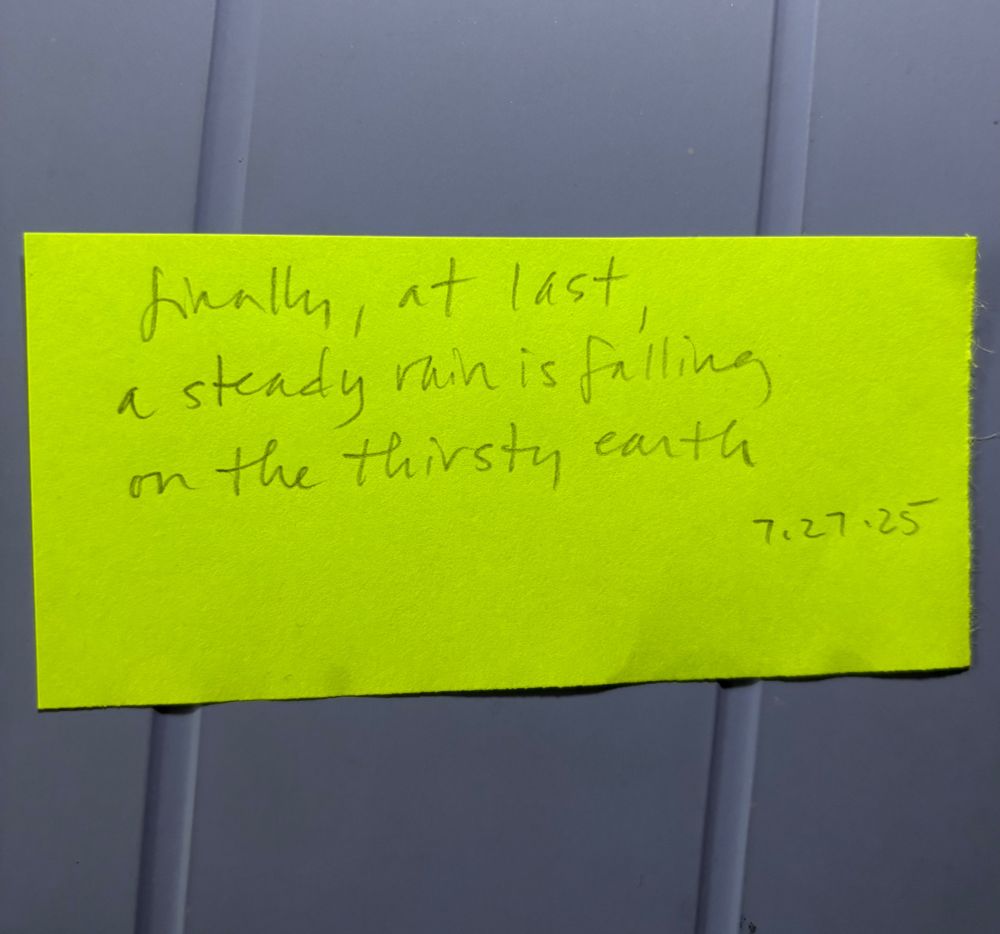 finally, at last,
a steady rain is falling
on the thirsty earth
7.27.25